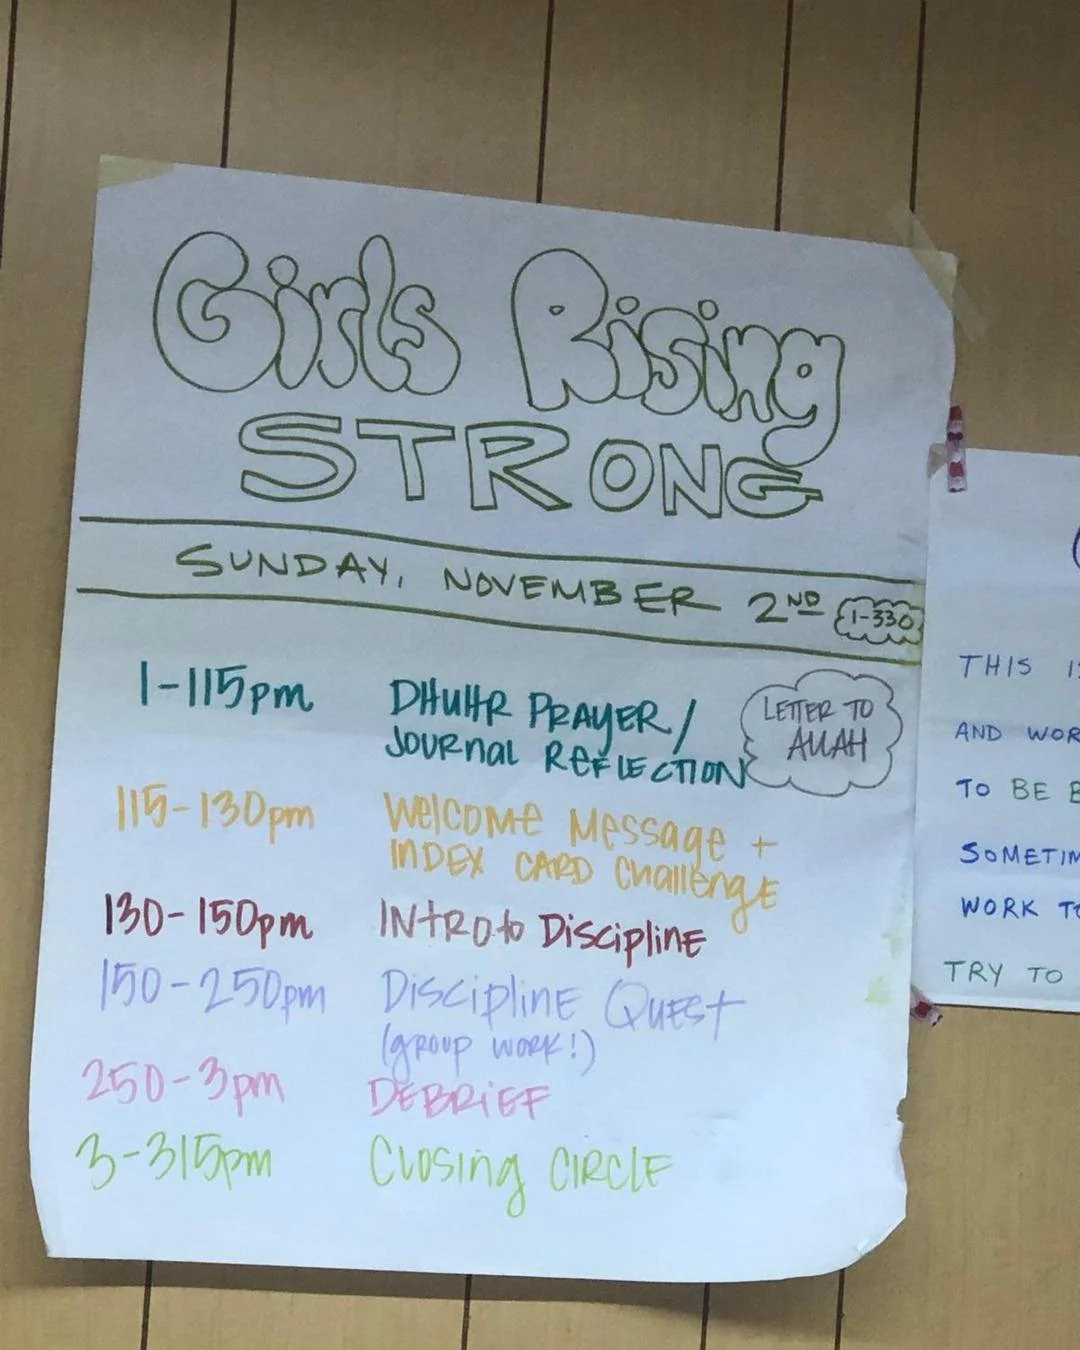 Girls Rising
STRONG
SUNDAY, NOVEMBER 2ND 1-330
1-115pm DHUHR PRAYER/
JOURNAL REFLECTION
LETTER TO
ALLAH
115-130pm WELCOME MESSAGE +
INDEX CARD CHALLENGE
130-150pm INTRO to DISCIPLINE
150-250pm DISCIPLINE QUEST
(group work!)
250-3pm DEBRIEF
3-315pm CLOSING CIRCLE
THIS
AND
TO BE
WORK
TRY TO